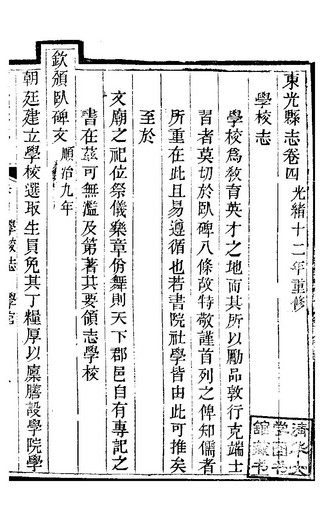 東光縣志卷四 光緒十二年重修
學校志
學校爲教育英才之地而其所以勵品敦行克端士
習者莫切於臥碑八條故特敬謹首列之俾知儒者
所重在此且易遵循也若書院社學皆由此可推矣
至於
文廟之祀位祭儀樂章佾舞則天下郡邑自有專記之
書在茲可無濫及第著其要領志學校
欽頒臥碑文 順治九年
朝廷建立學校選取生員免其丁糧厚以廩膳設學院學
學校志 學宮
清華大
學圖書
館藏書